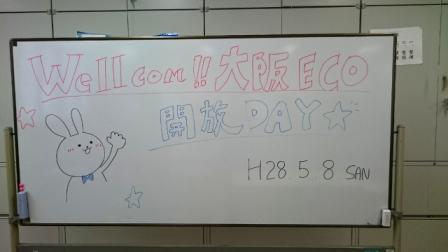 Well com!! 大阪 ECO
開放 DAY☆
H28 5 8 SAN